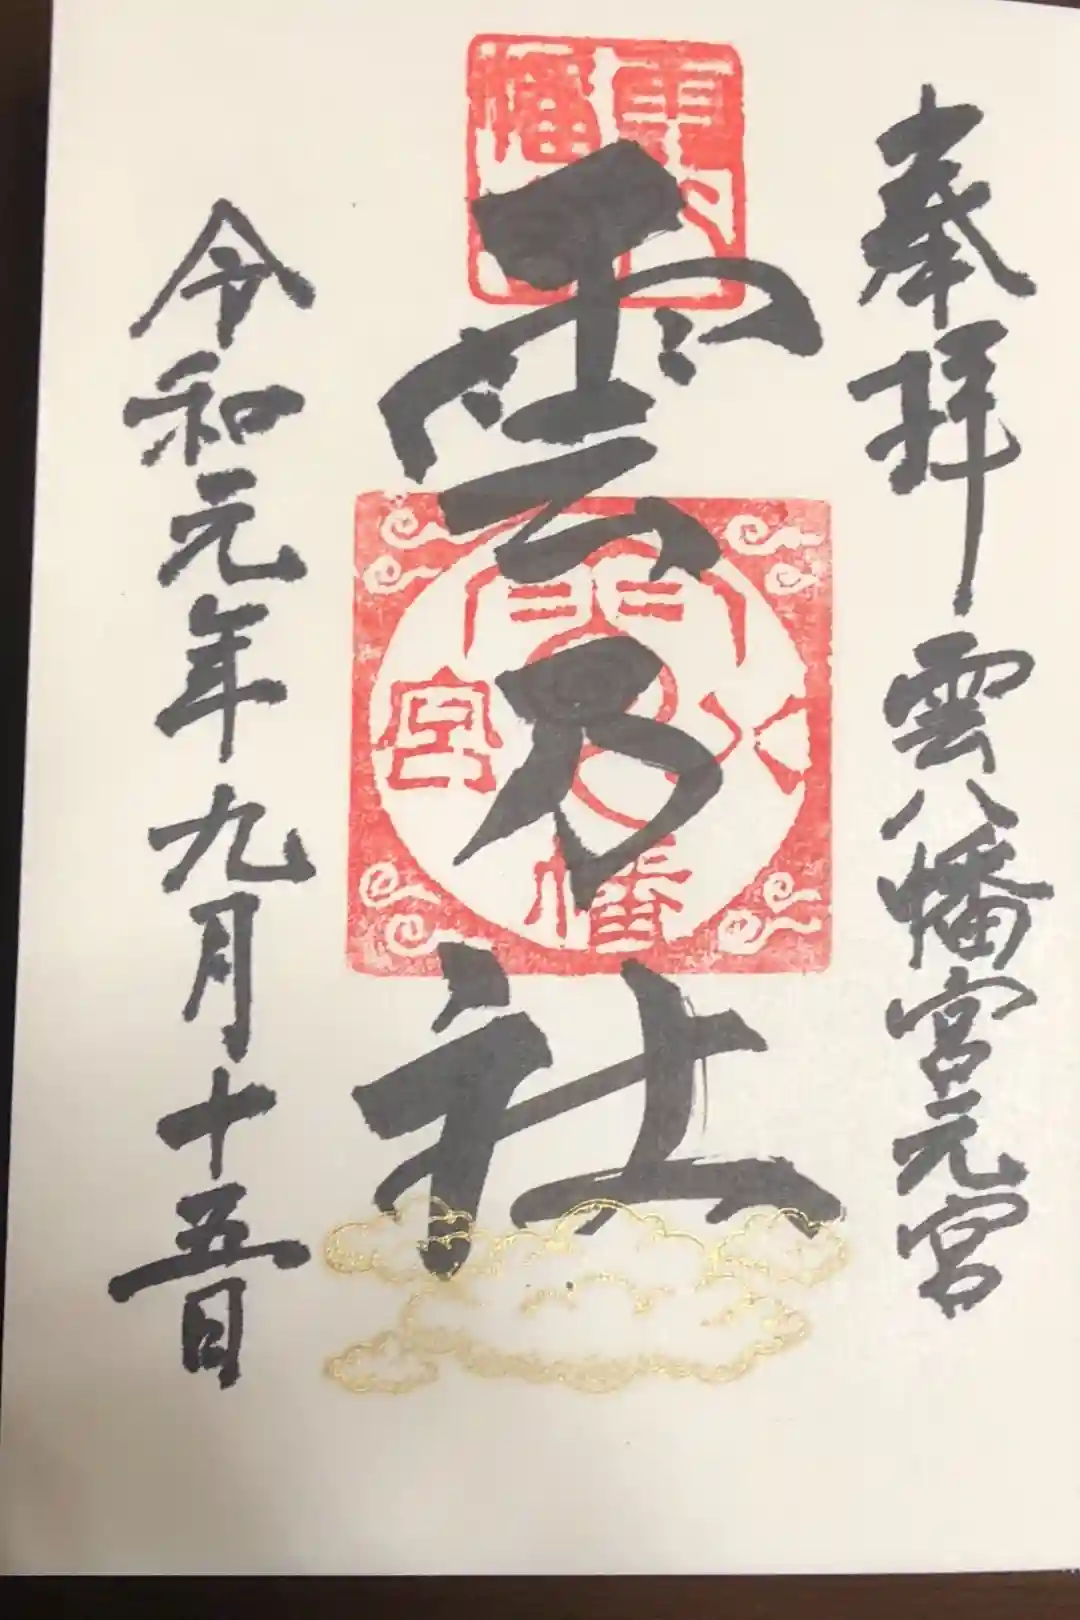 奉拝 雲八幡宮元宮
雲乃社
令和元年九月十五日
雲八幡宮